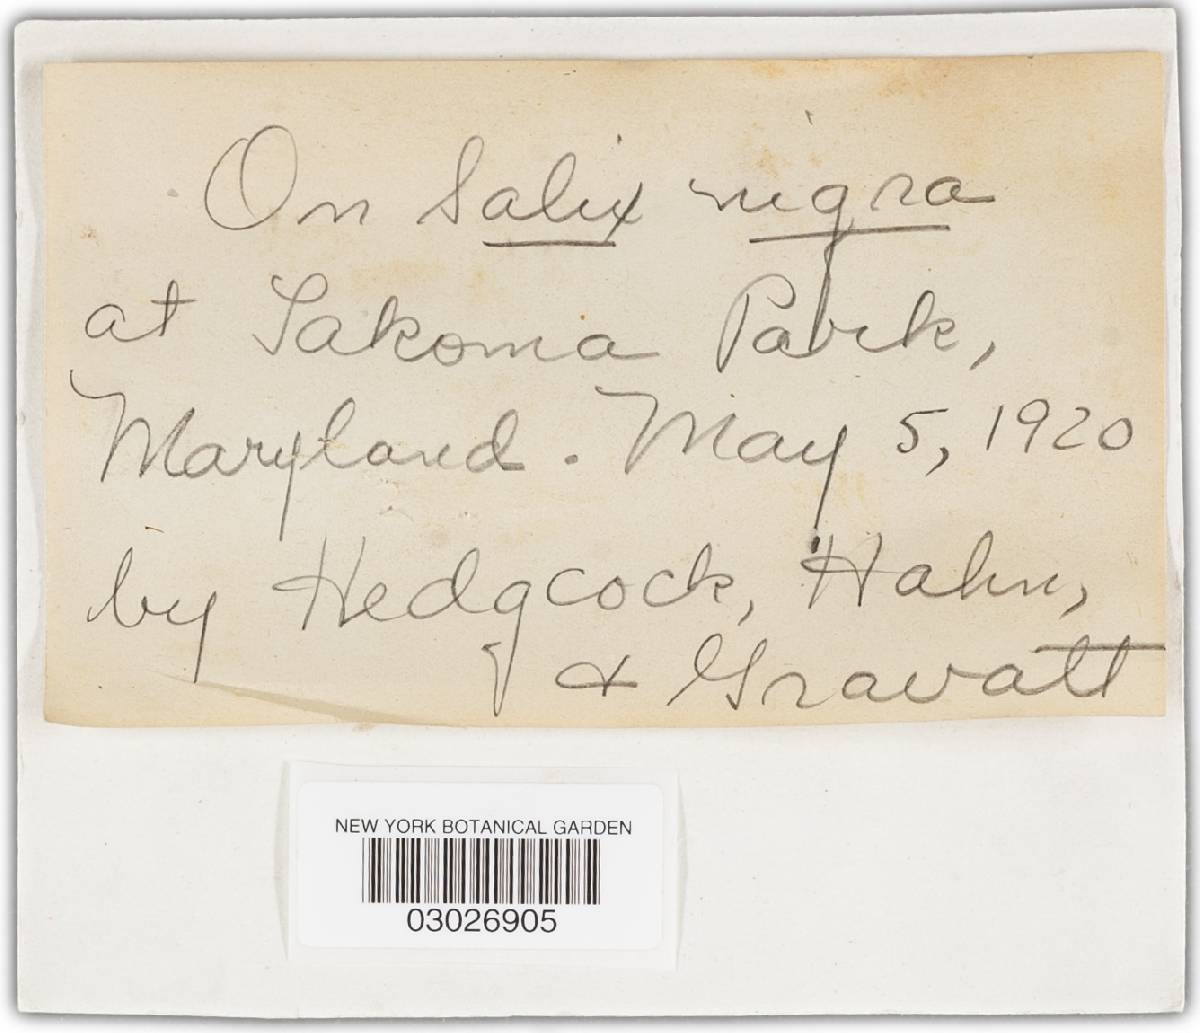 On Salix nigra
at Takoma Park,
Maryland. May 5, 1920
by Hedgcock, Hahn,
& Gravatt
NEW YORK BOTANICAL GARDEN
03026905